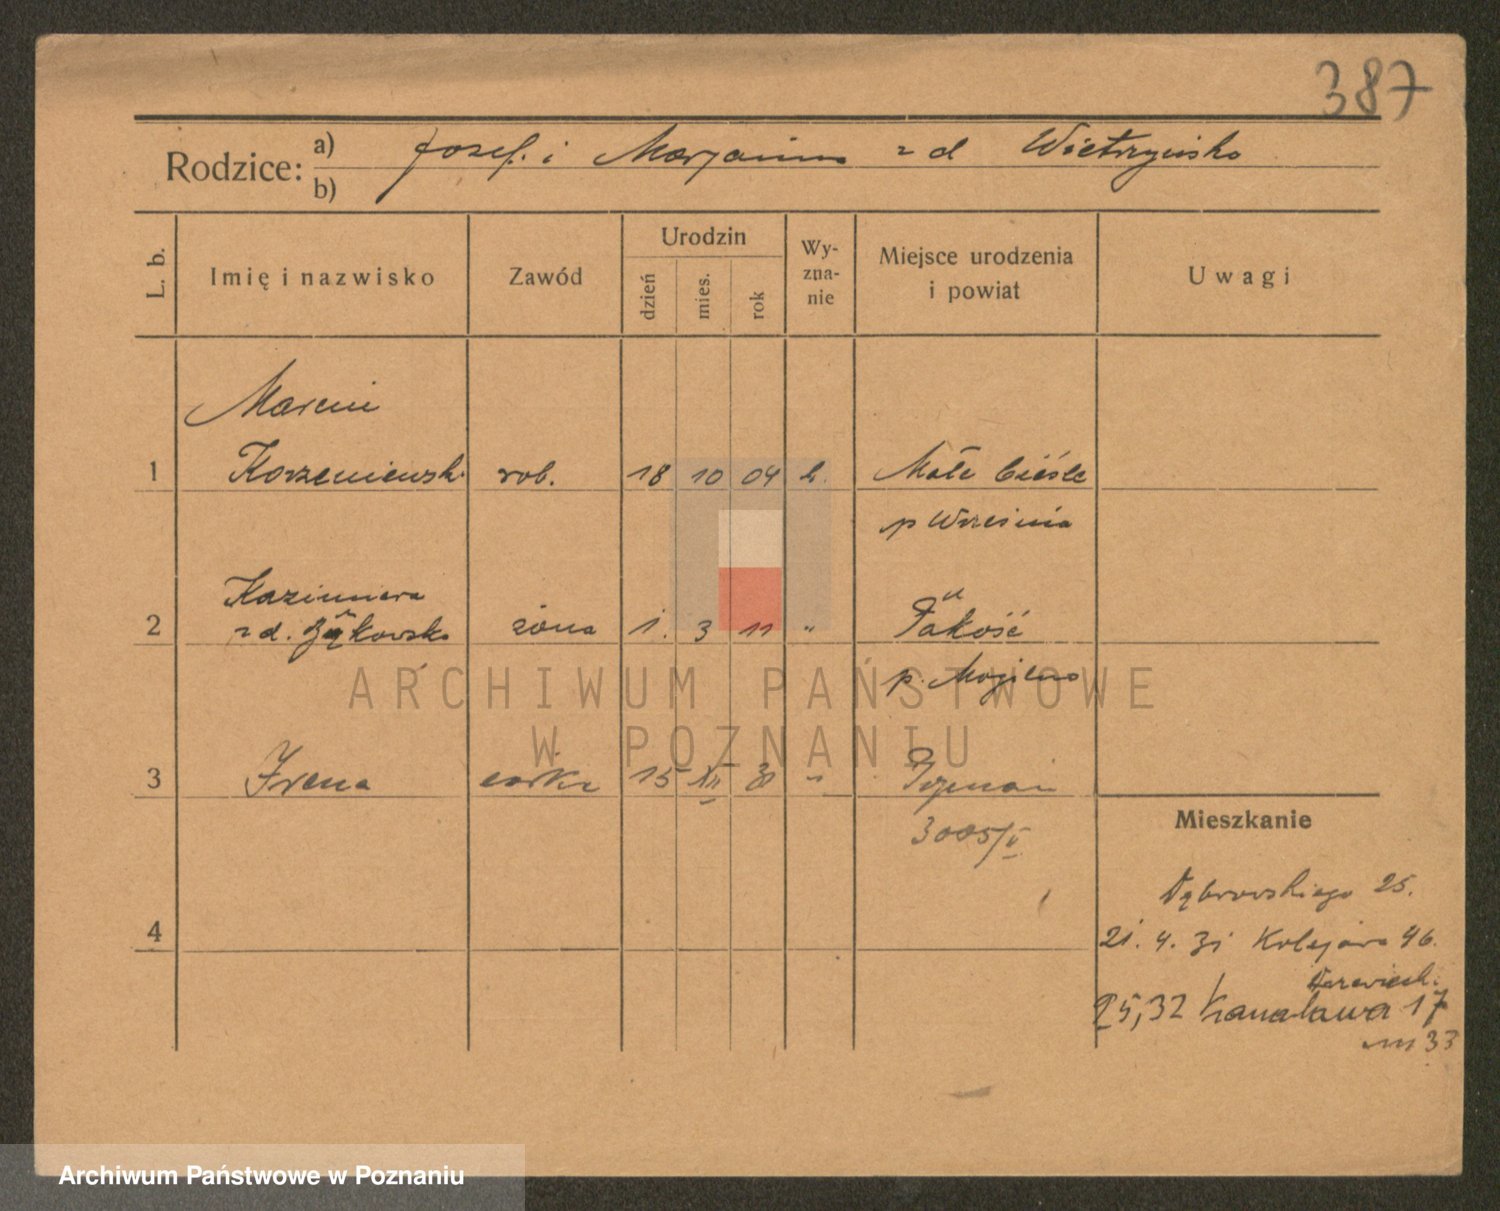 387
Rodzice: a) Josef i Marjanna z d Wietrzyńska
b)
L. b. Imię i nazwisko Zawód Urodzin dzień mies. rok Wy-zna-nie Miejsce urodzenia i powiat Uwagi
Marcin
1 Korzeniewski rob. 18 10 04 k. Małe Cieśle
p Września
Kazimiera
2 z d. Bąkowska żona 1. 3 11 " Pakość
p. Mogilno
3 Irena córka 15 XII 31 " Poznań
3005/V
Mieszkanie
Dąbrowskiego 25.
4
21. 4. 31 Kolejowa 46.
25,32 Kanałowa 17
m 33
ARCHIWUM PAŃSTWOWE
W POZNANIU
Archiwum Państwowe w Poznaniu